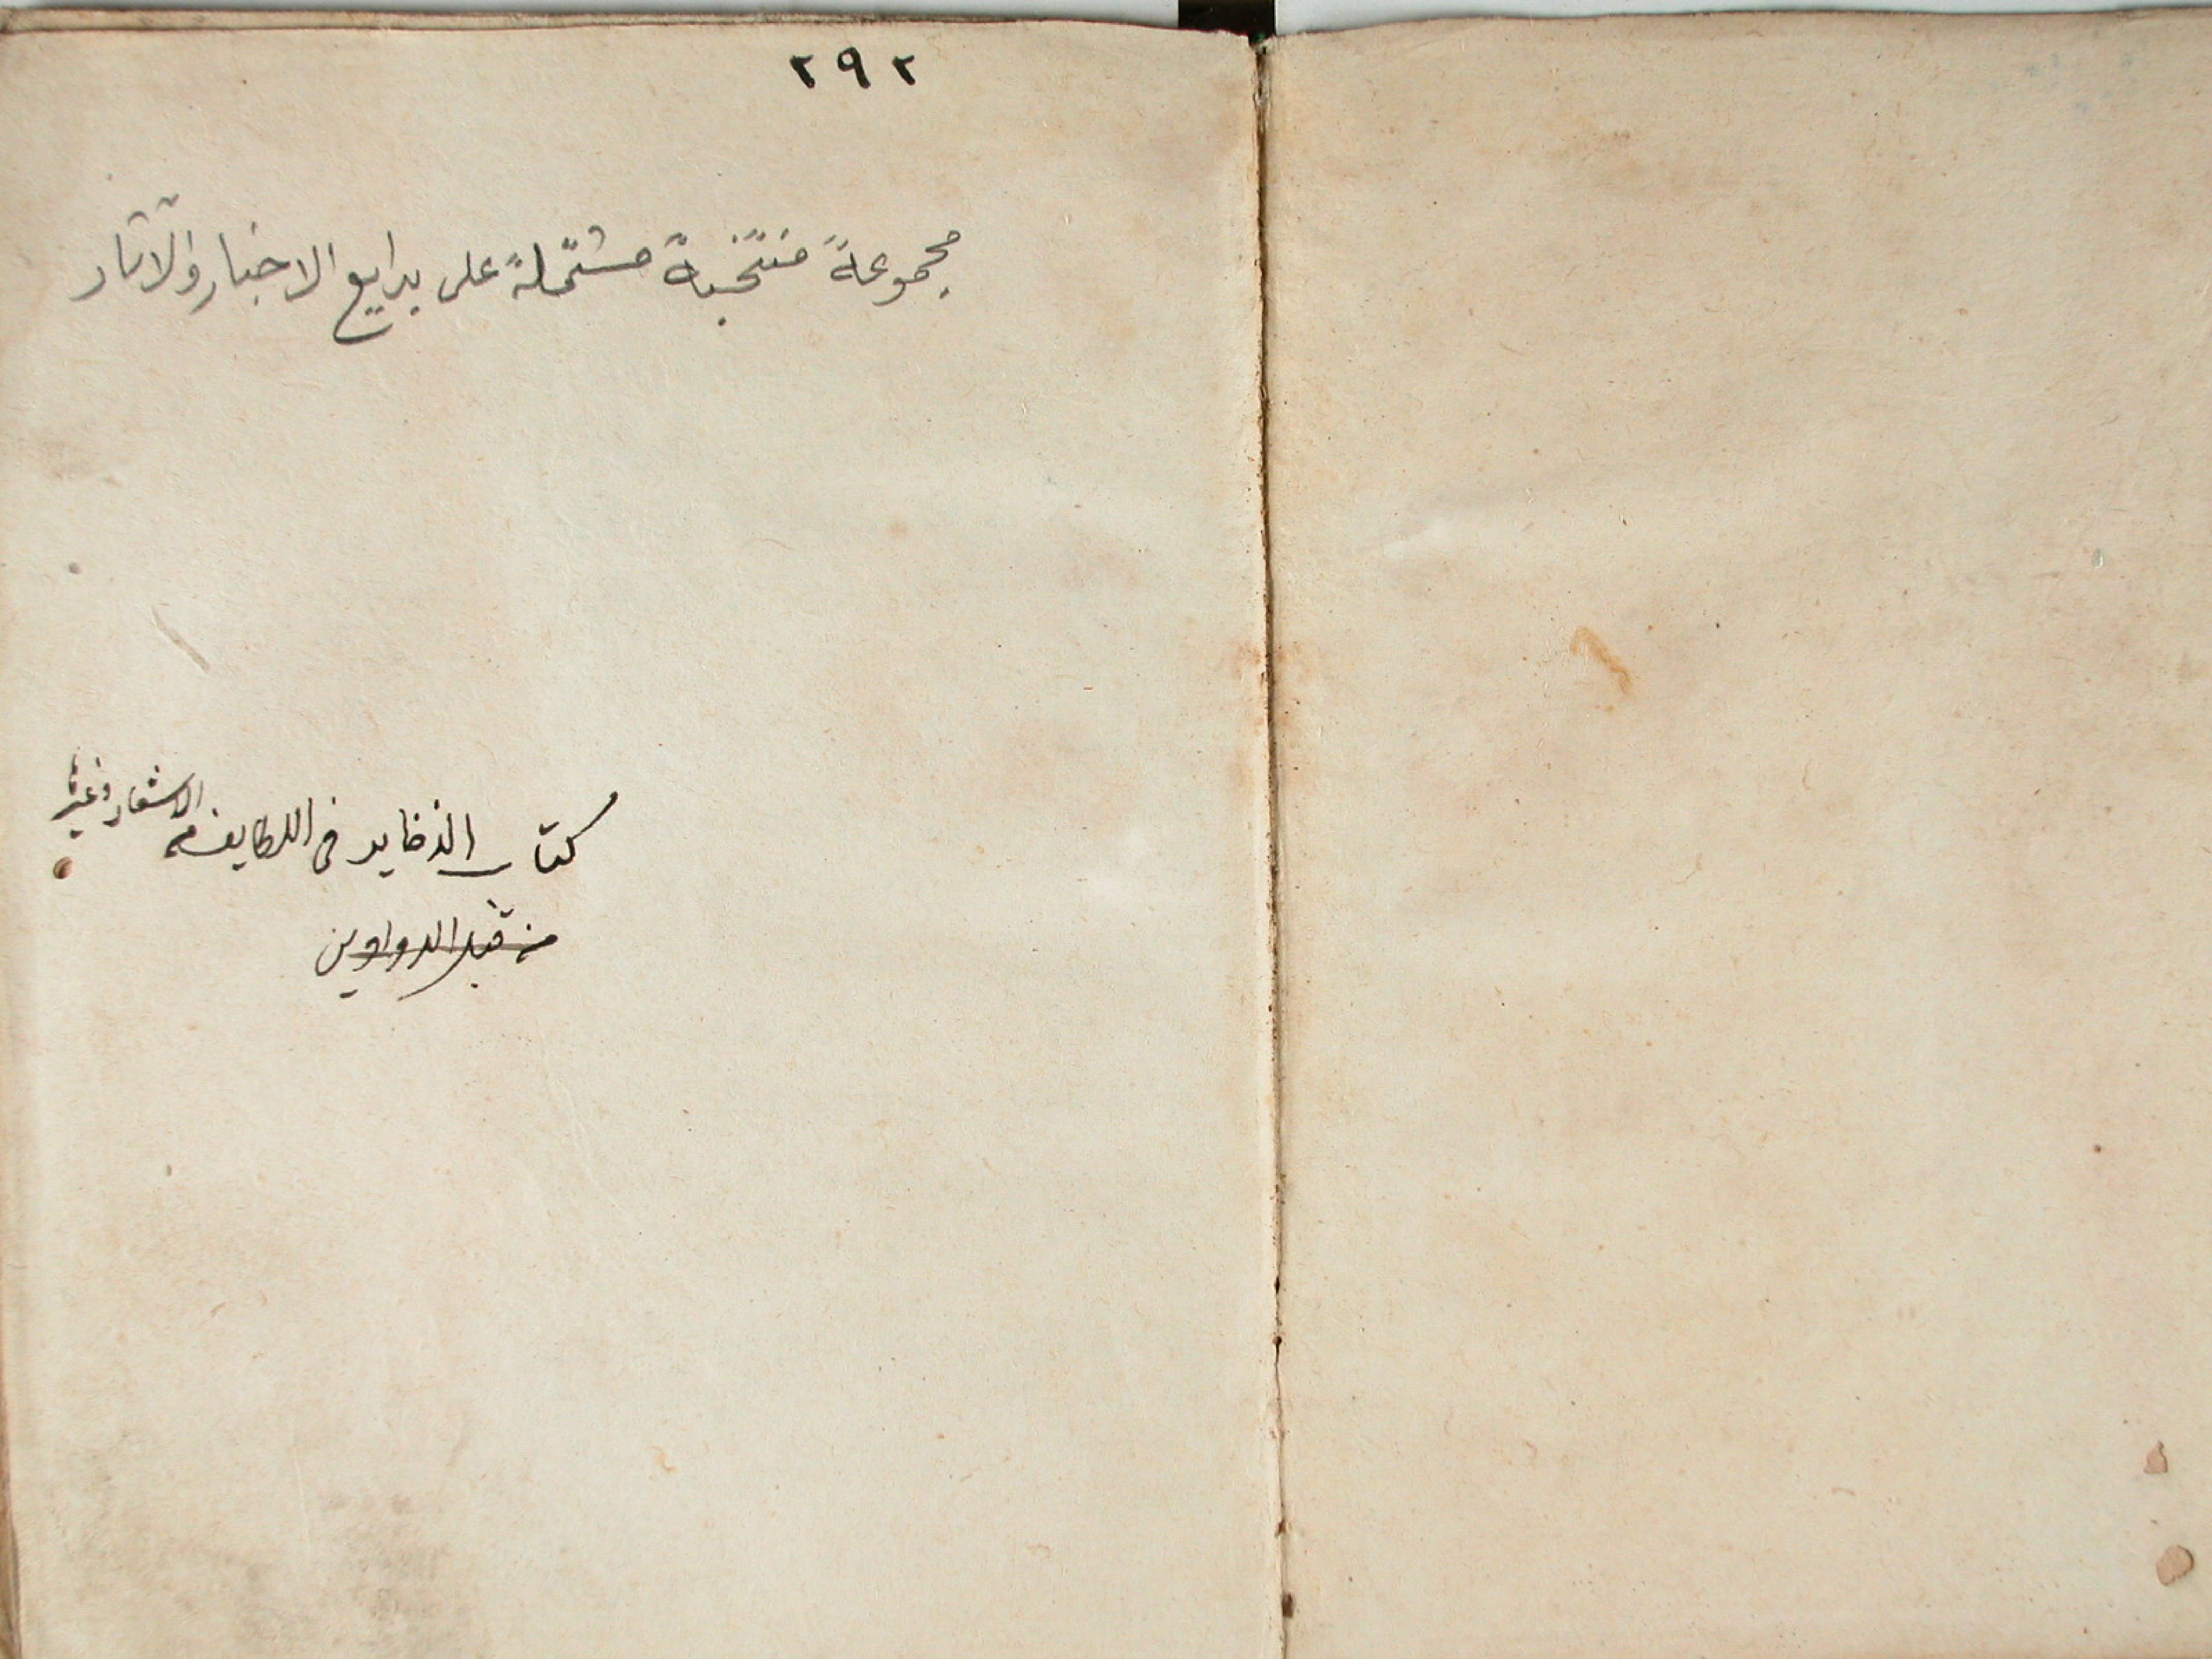 ٢٩٢
مجموعةً منتخبةً مشتملةً على بدايع الاخبار والآثار
كتاب الذخاير فى اللطايف من الاشعار وغيرها
من قبل الدواوين